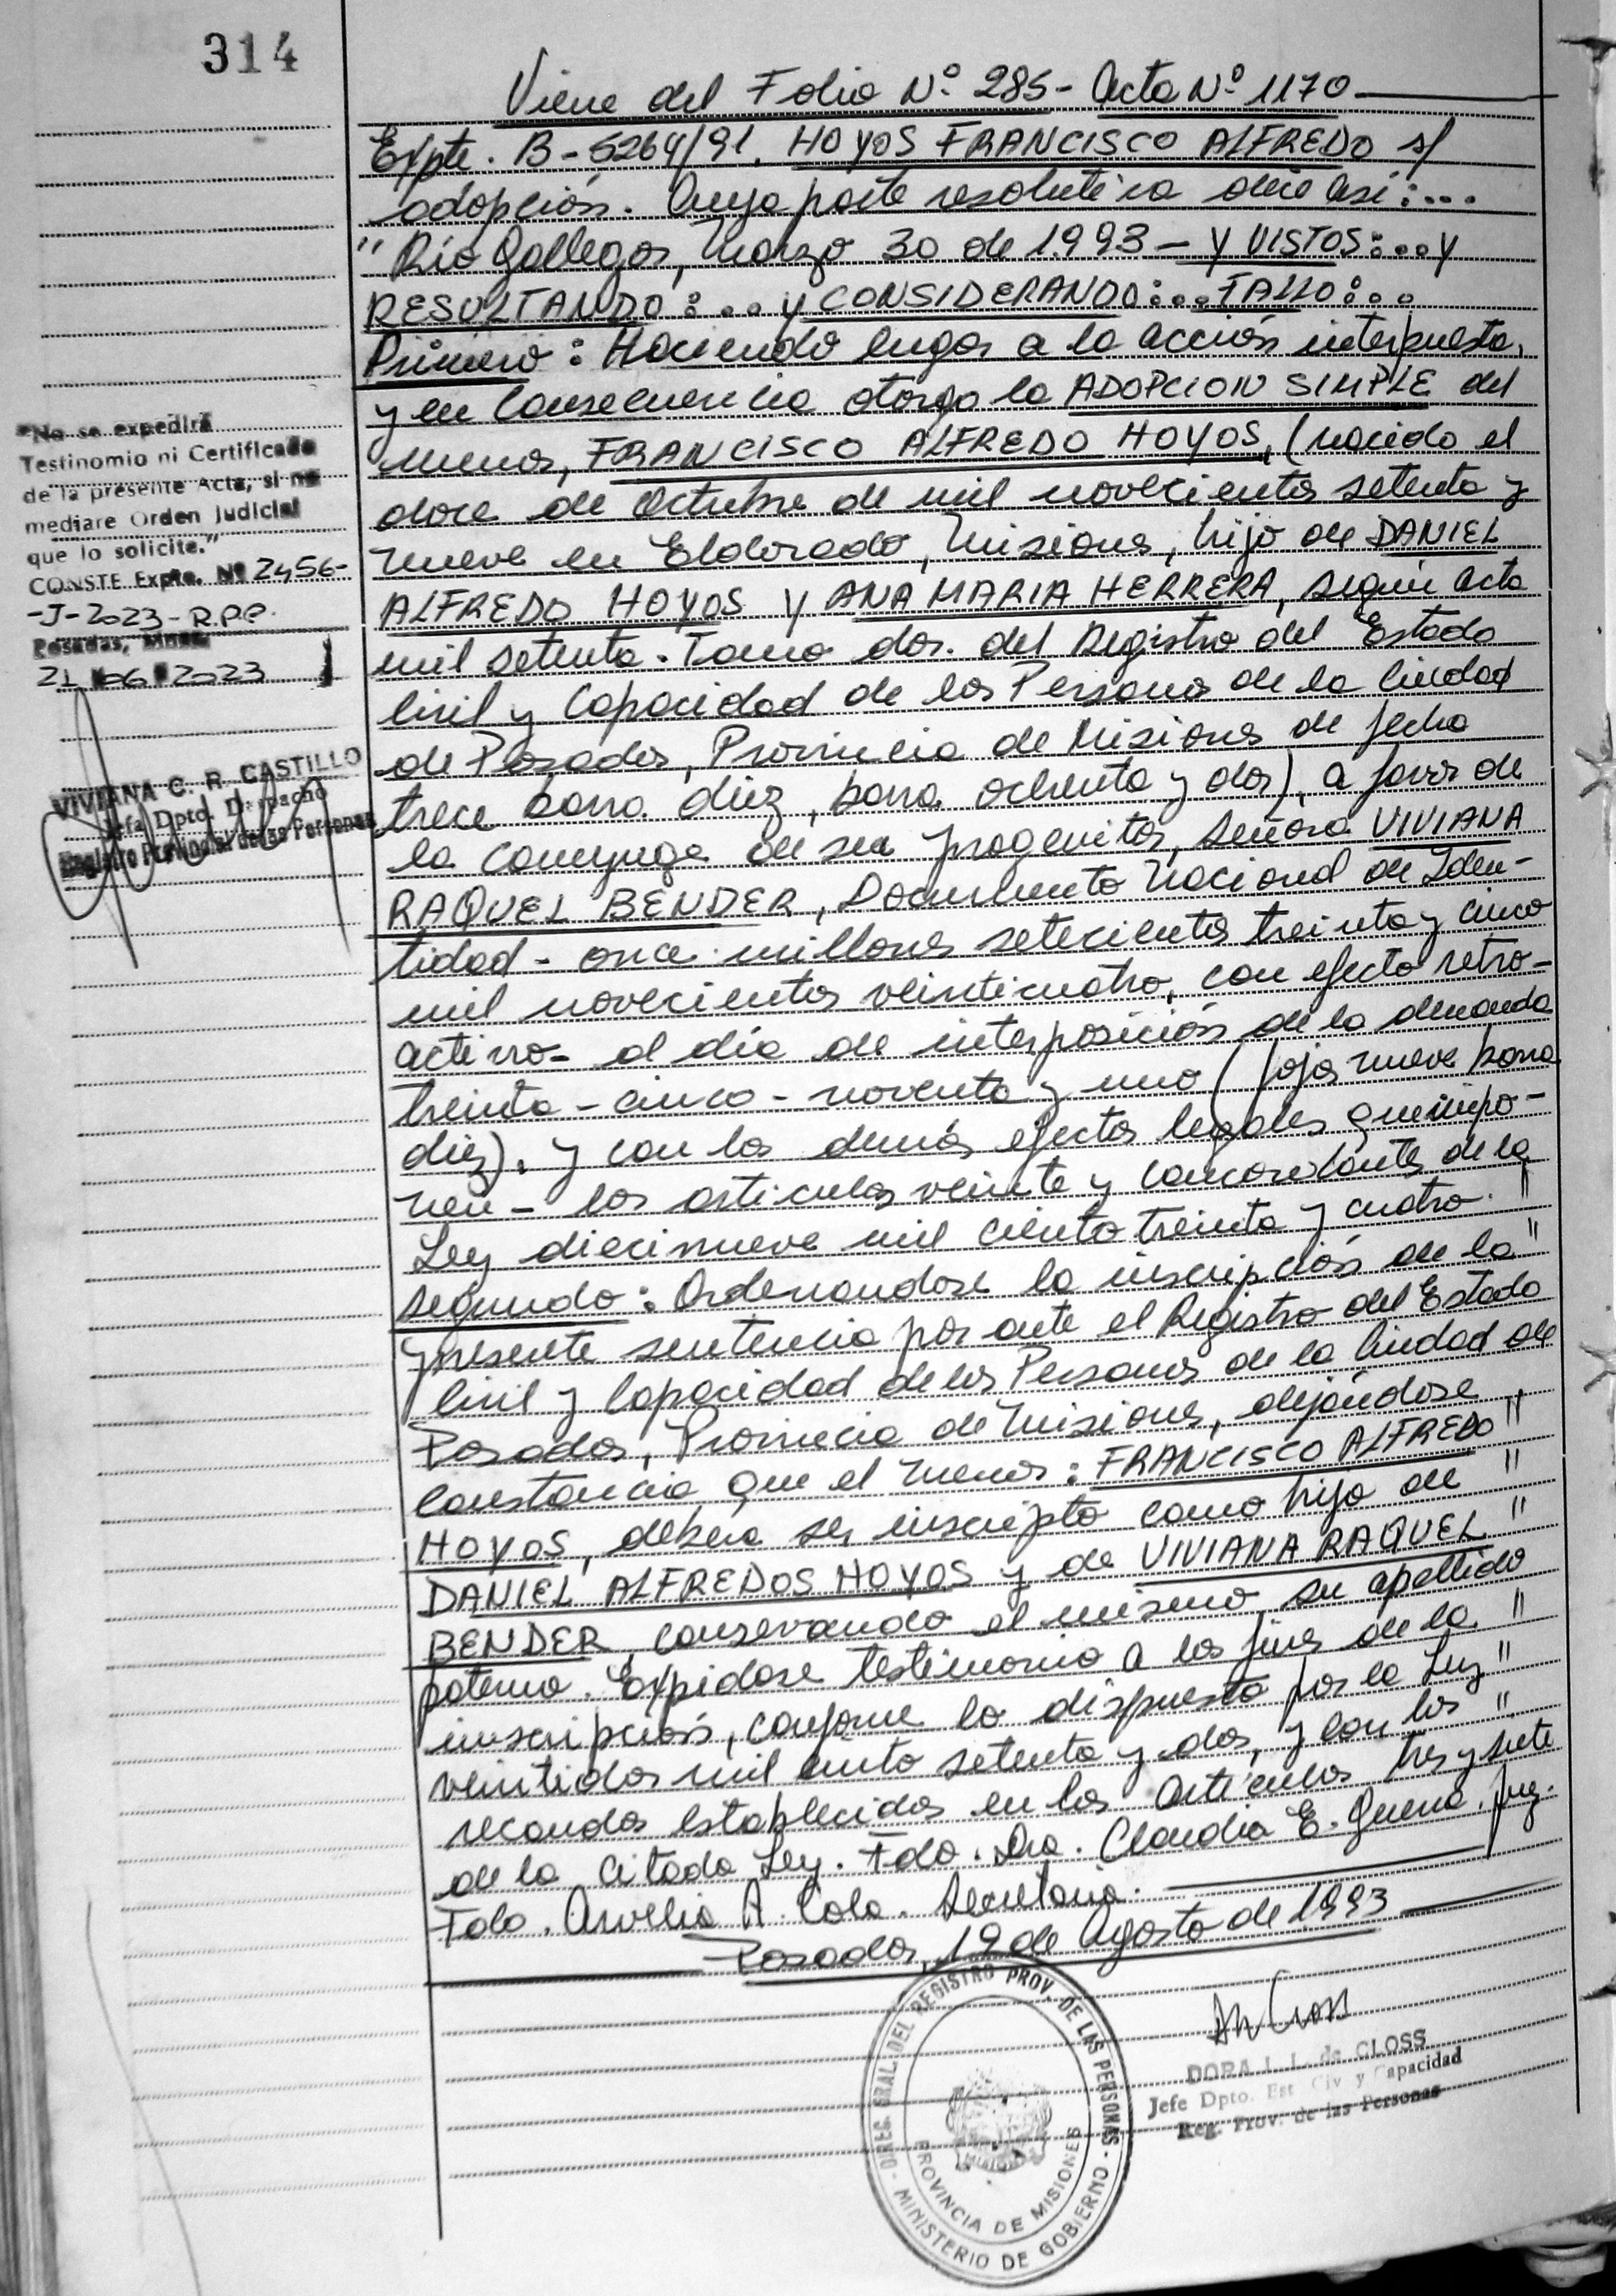 314
Viene del Folio Nº 285- Acta Nº 1170
Expte. B-5264/91. HOYOS FRANCISCO ALFREDO s/
adopción. Cuya parte resolutiva dice así:...
"Río Gallegos, Marzo 30 de 1.993 - Y VISTOS:... y
RESULTANDO:... y CONSIDERANDO:... FALLO:...
Primero: Haciendo lugar a la acción interpuesta,
y en Consecuencia otorgo la ADOPCION SIMPLE del
menor, FRANCISCO ALFREDO HOYOS, (nacido el
doce de Octubre de mil novecientos setenta y
nueve en Eldorado, Misiones, hijo de DANIEL
ALFREDO HOYOS Y ANA MARIA HERRERA, según Acta
mil setenta. Tomo dos. del Registro del Estado
Civil y Capacidad de las Personas de la Ciudad
de Posadas, Provincia de Misiones de fecha
trece barra diez, barra ochenta y dos), a favor de
la conyuge de su progenitor, señora VIVIANA
RAQUEL BENDER, Documento Nacional de Iden-
tidad - once millones setecientos treinta y cinco
mil novecientos veinticuatro, con efecto retro-
activo- al día de interposición de la demanda
treinta - cinco - noventa y uno (fojas nueve barra
diez). y con los demás efectos legales que impo-
nen - los articulos veinte y concordantes de la
Ley diecinueve mil ciento treinta y cuatro. "
segundo: Ordenandose la inscripción de la "
presente sentencia por ante el Registro del Estado
Civil y Capacidad de las Personas de la Ciudad de
Posadas, Provincia de Misiones, dejándose "
Constancia que el menor: FRANCISCO ALFREDO "
HOYOS, deberá ser inscripto como hijo de "
DANIEL ALFREDOS HOYOS y de VIVIANA RAQUEL "
BENDER conservando el mismo, su apellido
paterno. Expidase testimonio a los fines de la "
inscripción, conforme lo dispuesto por la Ley "
veintidos mil ciento setenta y dos, y con los "
recaudos establecidos en los Articulos tres y siete
de la citada Ley. Fdo. Dra. Claudia E. Guerra. Juez.
Fdo. Aurelia A. Cola. Secretaria.
Posadas, 19 de Agosto de 1993
"No se expedirá
Testimonio ni Certificado
de la presente Acta, si no
mediare Orden Judicial
que lo solicite."
CONSTE Expte. Nº 2456-
-J-2023-R.P.P.
Posadas, Mnes.
21 06 2023
VIVIANA C. R. CASTILLO
Jefa Dpto. Despacho
Registro Provincial de las Personas
DIREC. GRAL. DEL REGISTRO PROV. DE LAS PERSONAS
MINISTERIO DE GOBIERNO
PROVINCIA DE MISIONES
MISIONES
DORA I. L. de CLOSS
Jefe Dpto. Est. Civ y Capacidad
Reg. Prov. de las Personas